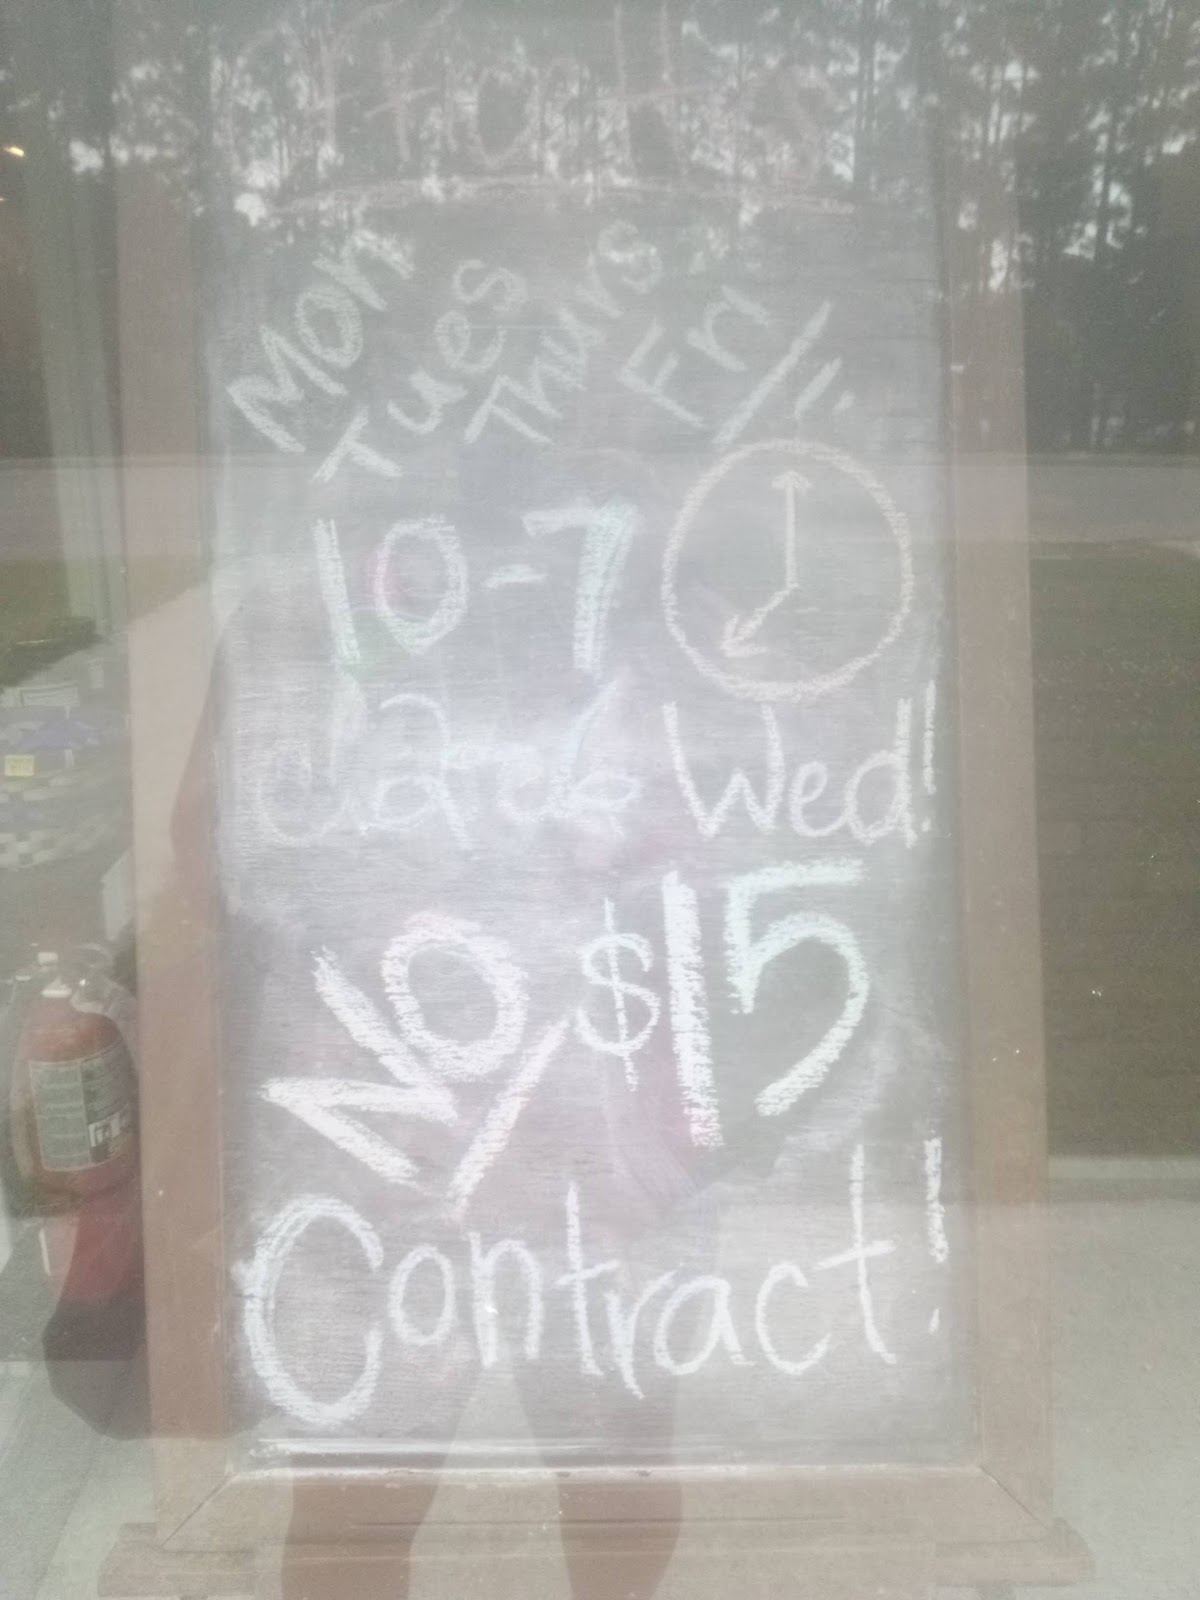 Hours
Mon Tues Thurs Fri
10-7
Wed!
No $15
Contract!